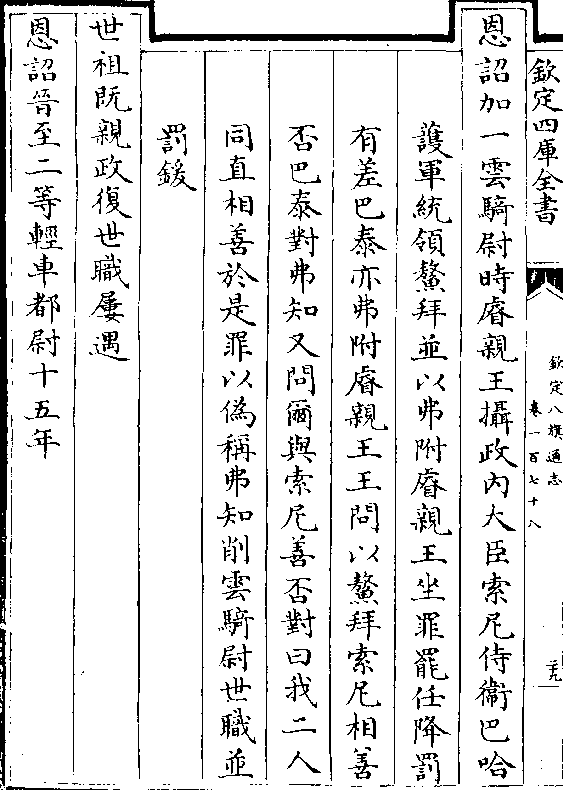 欽定四庫全書
欽定八旗通志
卷一百七十八
三九
恩詔加一雲騎尉時睿親王攝政內大臣索尼侍衞巴哈
護軍統領鰲拜並以弗附睿親王坐罪罷任降罰
有差巴泰亦弗附睿親王王問以鰲拜索尼相善
否巴泰對弗知又問爾與索尼善否對曰我二人
同直相善於是罪以偽稱弗知削雲騎尉世職並
罰鍰
世祖既親政復世職屢遇
恩詔晉至二等輕車都尉十五年